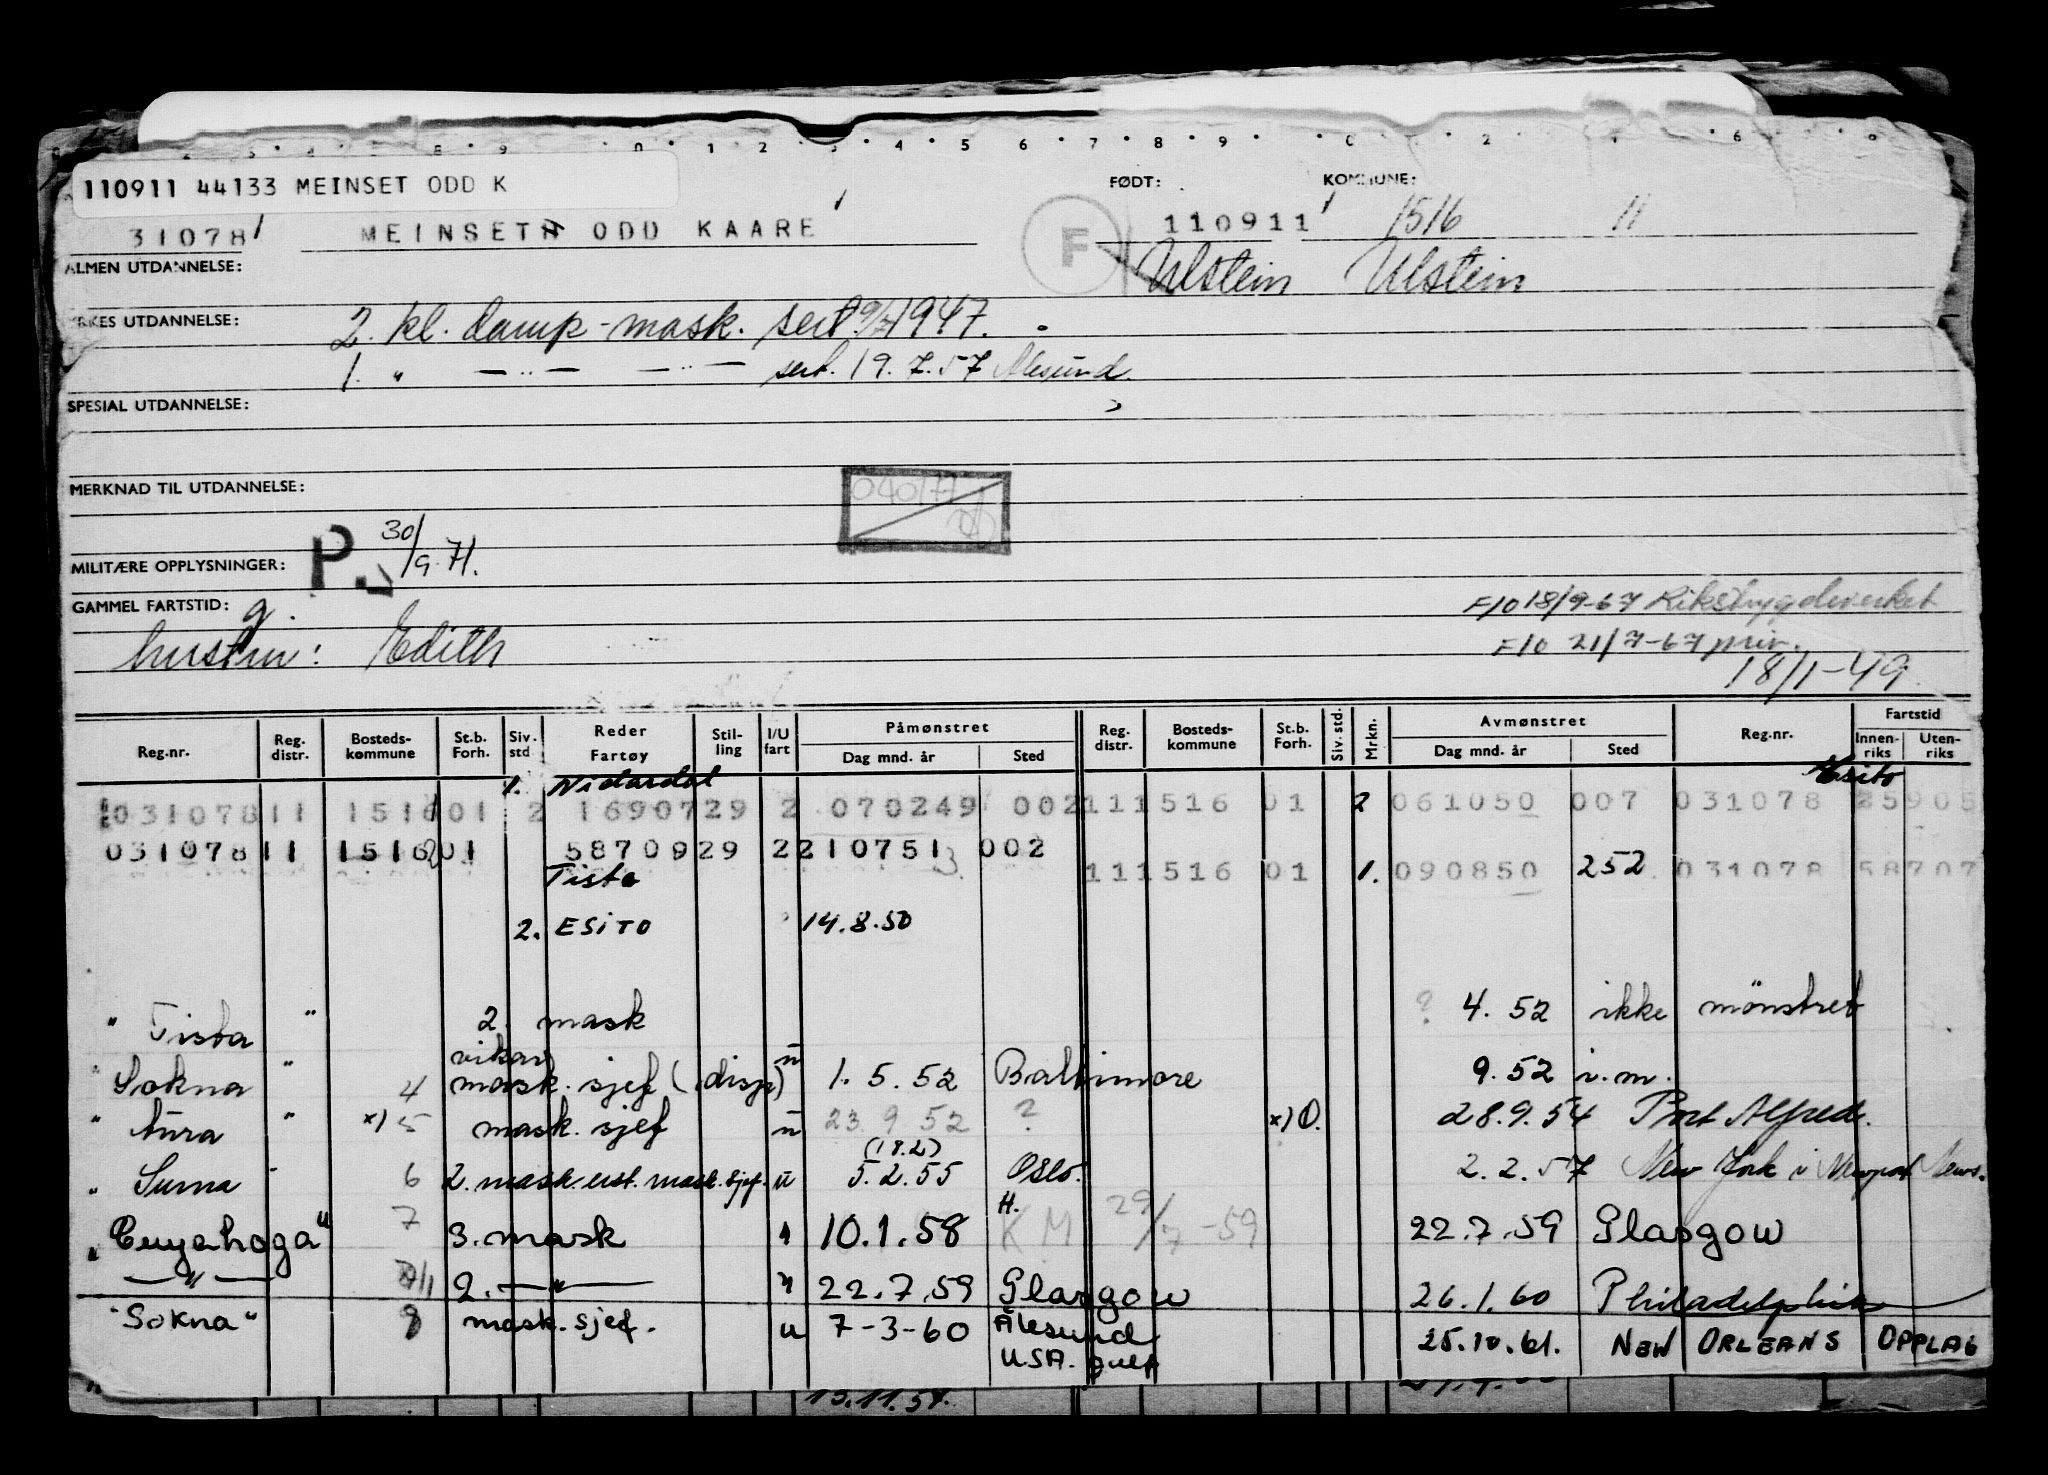 110911 44133 MEINSET ODD K
FØDT: KOMMUNE:
31078 MEINSETH ODD KAARE F 110911 1516 11
ALMEN UTDANNELSE: Ulstein Ulstein
YRKES UTDANNELSE: 2. kl. damp-mask. sert. 1947.
1. " — " — — " — sert. 19.7.57 Ålesund.
SPESIAL UTDANNELSE:
MERKNAD TIL UTDANNELSE: 040177
MILITÆRE OPPLYSNINGER: P. 30/9.71.
GAMMEL FARTSTID: g. F/O 18/9-67 Rikstrygdeverket
hustru: Edith F/O 21/7-67 priv.
18/1-49
Reg.nr. Reg. distr. Bosteds-kommune St.b. Forh. Siv. std Reder Fartøy Stil-ling I/U fart Påmønstret Dag mnd. år Sted Reg. distr. Bosteds-kommune St.b. Forh. Siv. std. Mrkn. Avmønstret Dag mnd. år Sted Reg.nr. Fartstid Innen-riks Uten-riks
1. Nidardal Esito
03107811 1516 01 2 1690729 2 070249 002 111516 01 2 061050 007 031078 25905
03107811 1516 01 5870929 2 210751 002
Tista 3. 111516 01 1. 090850 252 031078 58707
2. ESITO 14.8.50
" Tista " 2. mask ? 4. 52 ikke mønstret
" Sokna " 4 vikar mask. sjef (disp) u 1. 5. 52 Baltimore 9. 52 i.m.
" Aura " x) 5 mask. sjef u 23. 9. 52 ? x) O. 28.9.54 Port Alfred.
(18.2)
" Surna " 6 2. mask. eist. mask. sjef. u 5.2.55 Oslo. 2.2.57 New York i Newport News.
" Cuyahoga " 7 3. mask " 10.1.58 H. KM 29/7-59 22.7.59 Glasgow
— " — 7/11 2. — " — " 22.7.59 Glasgow 26.1.60 Philadelphia
"Sokna" 8 mask. sjef. u 7-3-60 Ålesund 25.10.61. NEW ORLEANS OPPLAG
USA. gulf
13.11.57.